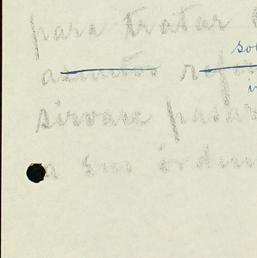 para tratar
so
asuntos refe
i
sirvase pasar
a sus órden